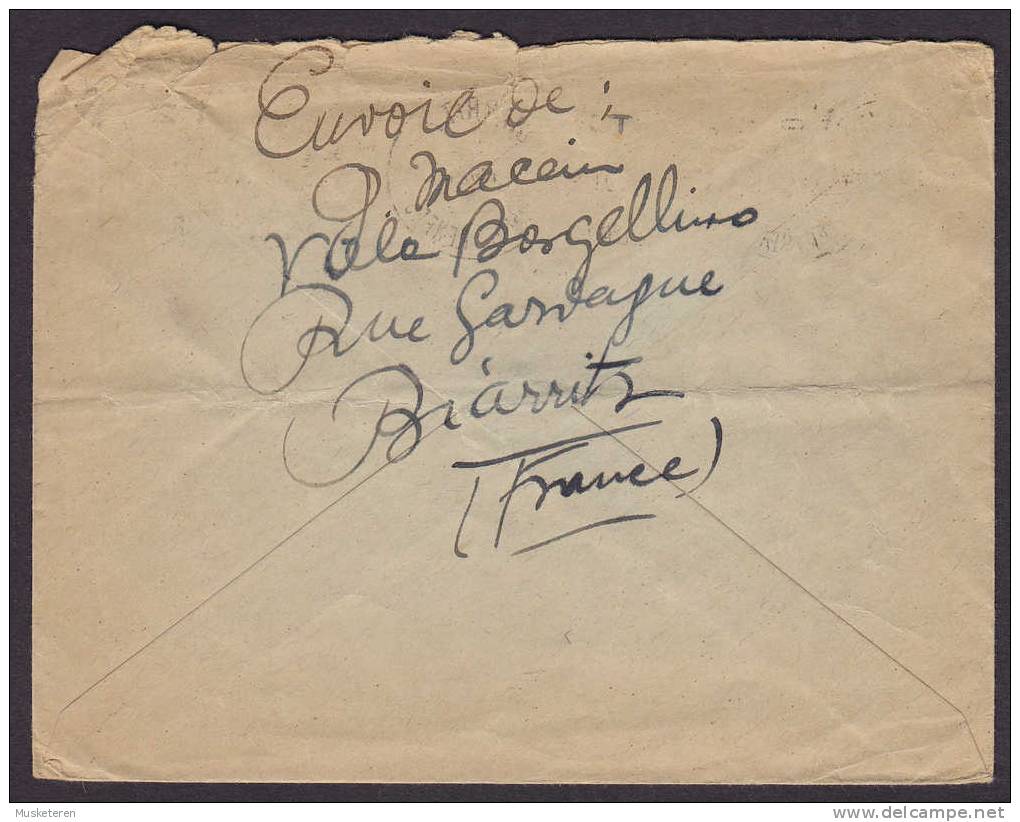 Envoie de :
Macein
Villa Borgellino
Rue Gardague
Biarritz
(France)
Musketeren
delcampe.net